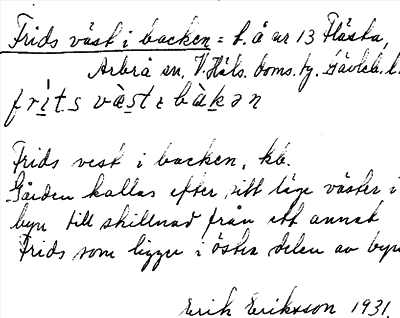 Frids väst i backen = t. å ar 13 Flästa,
Arbrå sn, V. Häls. doms. hg. Gävleb. l.
frits vàste bàkən
Frids vest i backen, kb.
Gården kallas efter sitt läge väster i
byn till skillnad från ett annat
Frids som ligger i östra delen av byn
Erik Eriksson 1931.